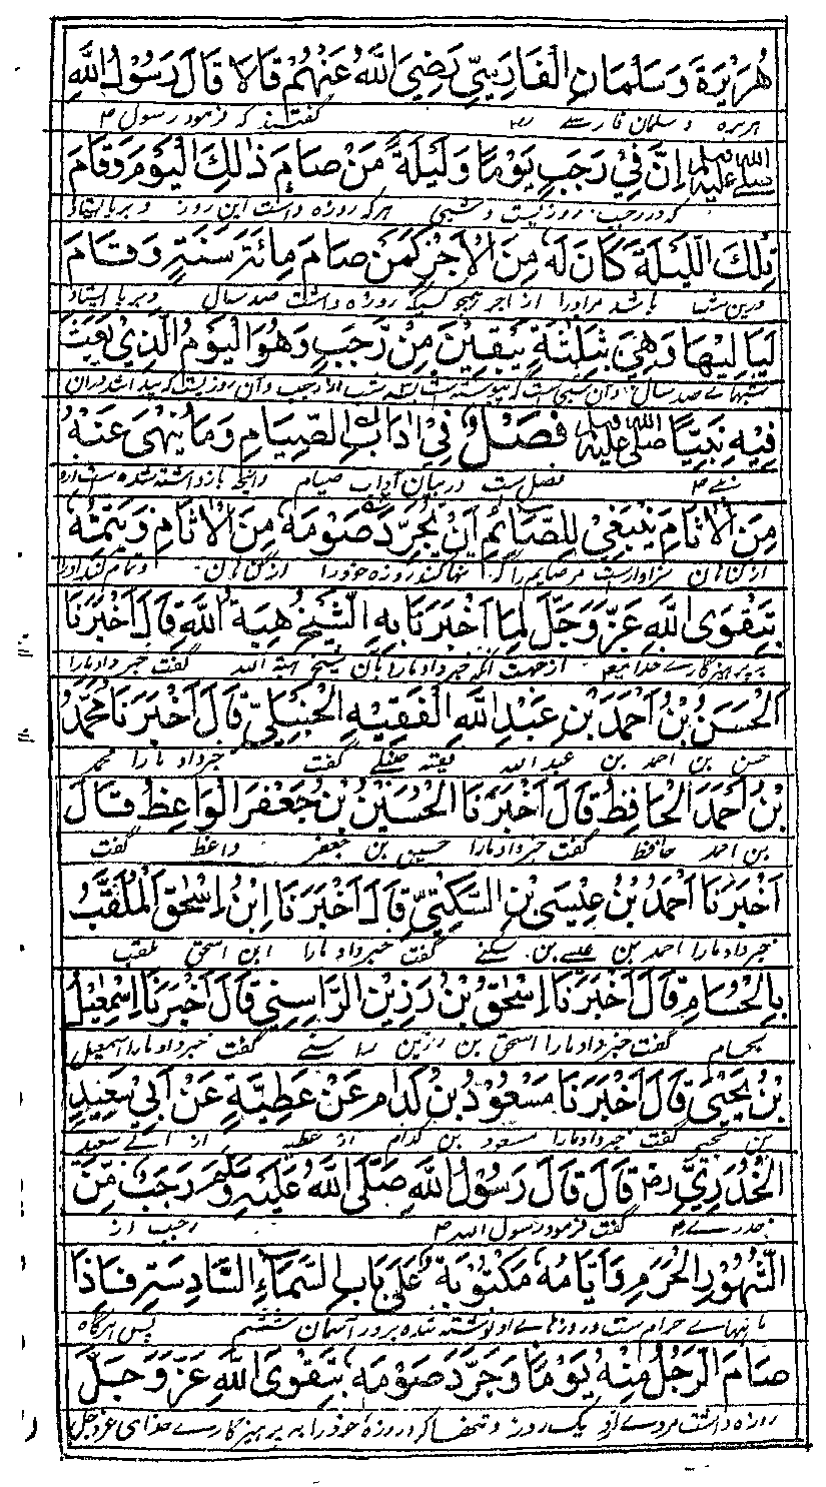 هُرَيْرَةَ وَسَلْمَانِ الْفَارِسِيِّ رَضِيَ اللّٰهُ عَنْهُمْ قَالَا قَالَ رَسُوْلُ اللّٰهِ
هریره و سلمان فارسے رض گفتند که فرمود رسول م
صلى الله عليه وسلم اِنَّ فِيْ رَجَبٍ يَوْمًا وَلَيْلَةً مَنْ صَامَ ذٰلِكَ الْيَوْمَ وَقَامَ
که در رجب روزیست و شبی هر که روزه داشت این روز و برپا ایستاد
تِلْكَ اللَّيْلَةَ كَانَ لَهٗ مِنَ الْاَجْرِ كَمَنْ صَامَ مِائَةَ سَنَةٍ وَقَامَ
درین شب باشد مر اورا از اجر همچو کسیکه روزه داشت صد سال و برپا ایستاد
لَيَالِيْهَا وَهِيَ بِثَلٰثَةٍ يَبْقِيْنَ مِنْ رَّجَبٍ وَهُوَ الْيَوْمُ الَّذِيْ بُعِثَ
شبهاے صد سال وآن شبی است که از رجب وآن روزیست که دران
فِيْهِ نَبِيُّنَا صلى الله عليه وسلم فَصْلٌ فِيْ اٰدَابِ الصِّيَامِ وَمَا يُنْهٰى عَنْهُ
فصل ست در بیان آداب صیام وانچه باز داشته شده ست ازو
مِنَ الْاٰثَامِ يَنْبَغِيْ لِلصَّائِمِ اَنْ يُجَرِّدَ صَوْمَهٗ مِنَ الْاٰثَامِ وَيُتِمَّهٗ
از گناهان سزاوارست مر صایم را که تنها کند روزه خود را از گناهان و تمام کند اورا
بِتَقْوَى اللّٰهِ عَزَّ وَجَلَّ لِمَا اَخْبَرَنَا بِهِ الشَّيْخُ هِبَةُ اللّٰهِ قَالَ اَخْبَرَنَا
به پرهیزگارے خدا از جهت آنکه خبر داد مارا بآن شیخ هبة الله گفت خبر داد مارا
الْحَسَنُ بْنُ اَحْمَدَ بْنِ عَبْدِ اللّٰهِ الْفَقِيْهِ الْحَنْبَلِيِّ قَالَ اَخْبَرَنَا مُحَمَّدُ
حسن بن احمد بن عبد الله فقیه حنبلے گفت خبر داد مارا محمد
بْنُ اَحْمَدَ الْحَافِظُ قَالَ اَخْبَرَنَا الْحُسَيْنُ بْنُ جَعْفَرَ الْوَاعِظُ قَالَ
بن احمد حافظ گفت خبر داد مارا حسین بن جعفر واعظ گفت
اَخْبَرَنَا اَحْمَدُ بْنُ عِيْسَى بْنِ السَّكَنِيِّ قَالَ اَخْبَرَنَا ابْنُ اِسْحٰقَ الْمُلَقَّبُ
خبر داد مارا احمد بن عیسے بن سکنے گفت خبر داد مارا ابن اسحق ملقب
بِالْحُسَامِ قَالَ اَخْبَرَنَا اِسْحٰقُ بْنُ رَزِيْنِ الرَّاسِنِيُّ قَالَ اَخْبَرَنَا اِسْمٰعِيْلُ
بحسام گفت خبر داد مارا اسحق بن رزین راسنے گفت خبر داد مارا اسمعیل
بْنُ يَحْيٰى قَالَ اَخْبَرَنَا مَسْعُوْدُ بْنُ كِدَامٍ عَنْ عَطِيَّةَ عَنْ اَبِيْ سَعِيْدٍ
بن یحیی گفت خبر داد مارا مسعود بن کدام از عطیه از ابے سعید
الْخُدْرِيِّ رض قَالَ قَالَ رَسُوْلُ اللّٰهِ صَلَّى اللّٰهُ عَلَيْهِ وَسَلَّمَ رَجَبٌ مِّنَ
خدرے رض گفت فرمود رسول الله م رجب از
الشُّهُوْرِ الْحُرُمِ وَاَيَّامُهٗ مَكْتُوْبَةٌ عَلٰى بَابِ السَّمَاءِ السَّادِسَةِ فَاِذَا
ماههاے حرام ست و روزهاے او نوشته شده بر در آسمان ششم پس هرگاه
صَامَ الرَّجُلُ مِنْهُ يَوْمًا وَجَرَّدَ صَوْمَهٗ بِتَقْوَى اللّٰهِ عَزَّ وَجَلَّ
روزه داشت مردے ازو یک روز و روزه خود را به پرهیزگارے خدای عزوجل